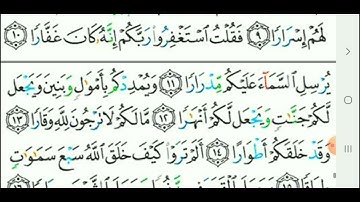 لَهُمْ إِسْرَارًا ٩ فَقُلْتُ ٱسْتَغْفِرُوا۟ رَبَّكُمْ إِنَّهُۥ كَانَ غَفَّارًا ١٠
يُرْسِلِ ٱلسَّمَآءَ عَلَيْكُم مِّدْرَارًا ١١ وَيُمْدِدْكُم بِأَمْوَٰلٍ وَبَنِينَ وَيَجْعَل
لَّكُمْ جَنَّٰتٍ وَيَجْعَل لَّكُمْ أَنْهَٰرًا ١٢ مَّا لَكُمْ لَا تَرْجُونَ لِلَّهِ وَقَارًا ١٣
وَقَدْ خَلَقَكُمْ أَطْوَارًا ١٤ أَلَمْ تَرَوْا۟ كَيْفَ خَلَقَ ٱللَّهُ سَبْعَ سَمَٰوَٰتٍ